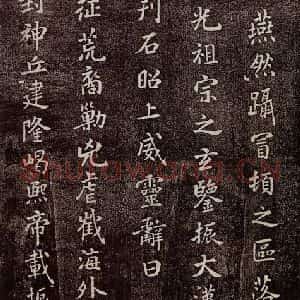 燕然躡冒頓之區落
光祖宗之玄鑒振大漢
刊石昭上威靈辭曰
征荒裔勦兇虐截海外
封神丘建隆嵑熙帝載振